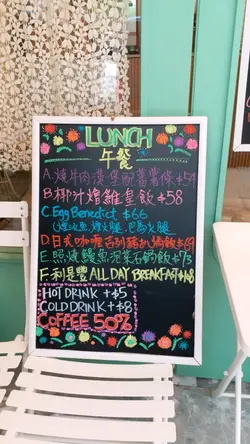 LUNCH
午餐
A. 燒牛肉漢堡配蕃薯條 $54
B. 椰汁燴雞皇飯 $58
C. Egg Benedict $66
(煙火魚, 煙火腿, 巴馬火腿)
D. 日式咖喱吉列豬扒焗飯 $69
E. 照燒鰻魚泥菜石鍋飯 $73
F. 利是豐 ALL DAY BREAKFAST
HOT DRINK +$5
COLD DRINK +$8
COFFEE 50%